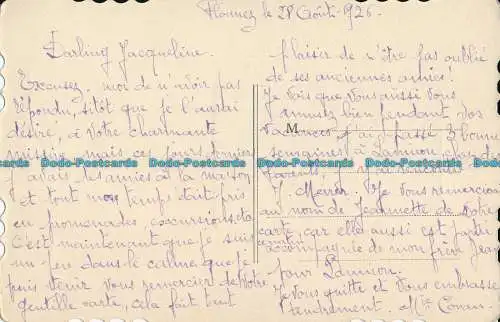 le 28 Août 1926.
Darling Jacqueline.
Excusez-moi de n'avoir pas
répondu, sitôt que je l'aurai
désiré, à votre charmante
missive, mais ces jours derniers
j'avais des amies à la maison
et tout mon temps était pris
en promenades, excursions. 
C'est maintenant que je suis
un peu dans le calme que je
puis venir vous remercier de votre
gentille carte, cela fait tout
plaisir de n'être pas oublié
de ses anciennes amies!
Je vois que vous aussi vous
amusez bien pendant vos
vacances, j'ai passé 3 bonnes
semaines à Lannion, chez des
parents, j'y ai rencontré
J. Vous remercier
au nom de Jeannette de votre
carte, car elle aussi est partie
accompagnée de mon frère Jean
pour Lannion.
Je vous quitte et vous embrasse
tendrement. Mie
M
Dodo-Postcards Dodo-Postcards Dodo-Postcards Dodo-Postcards Dodo-Postcards